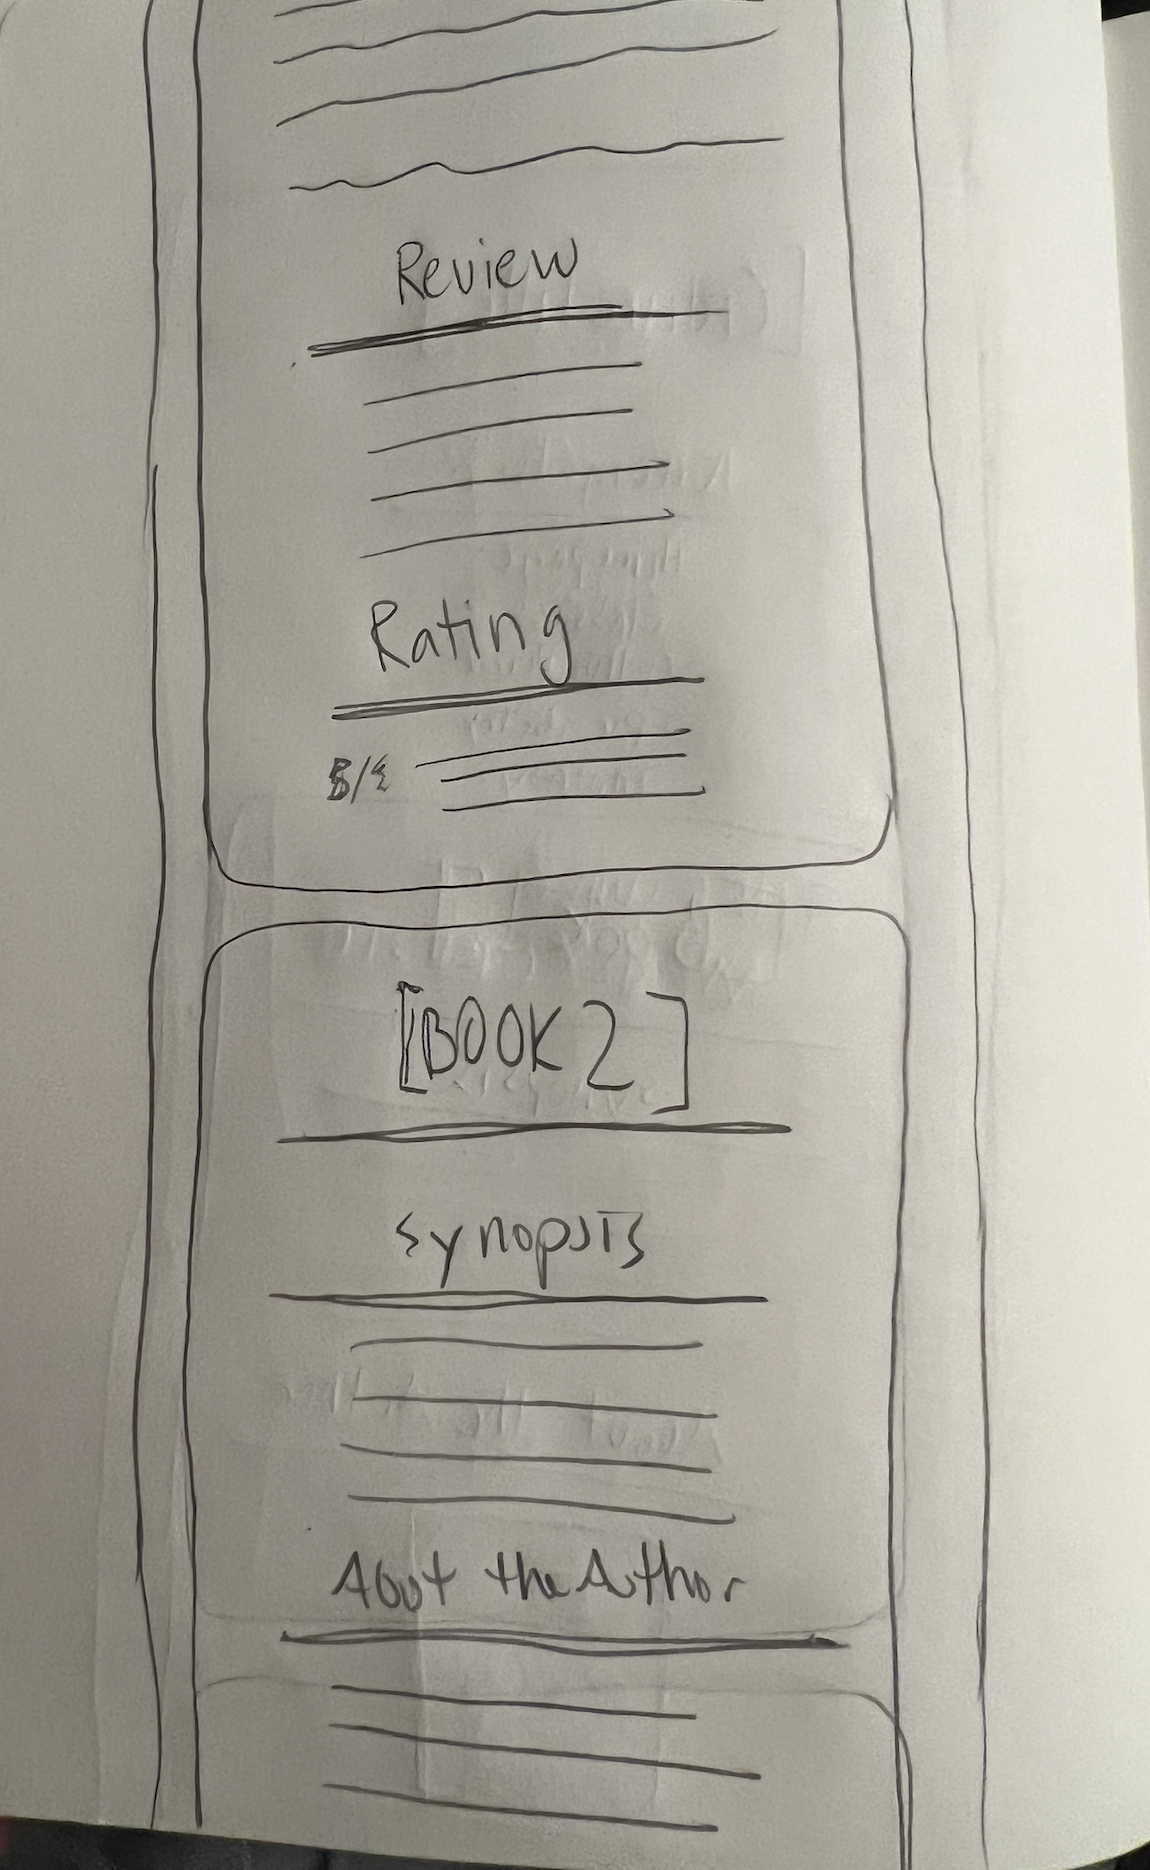 Review
Rating
[BOOK 2]
Synopsis
About the Author